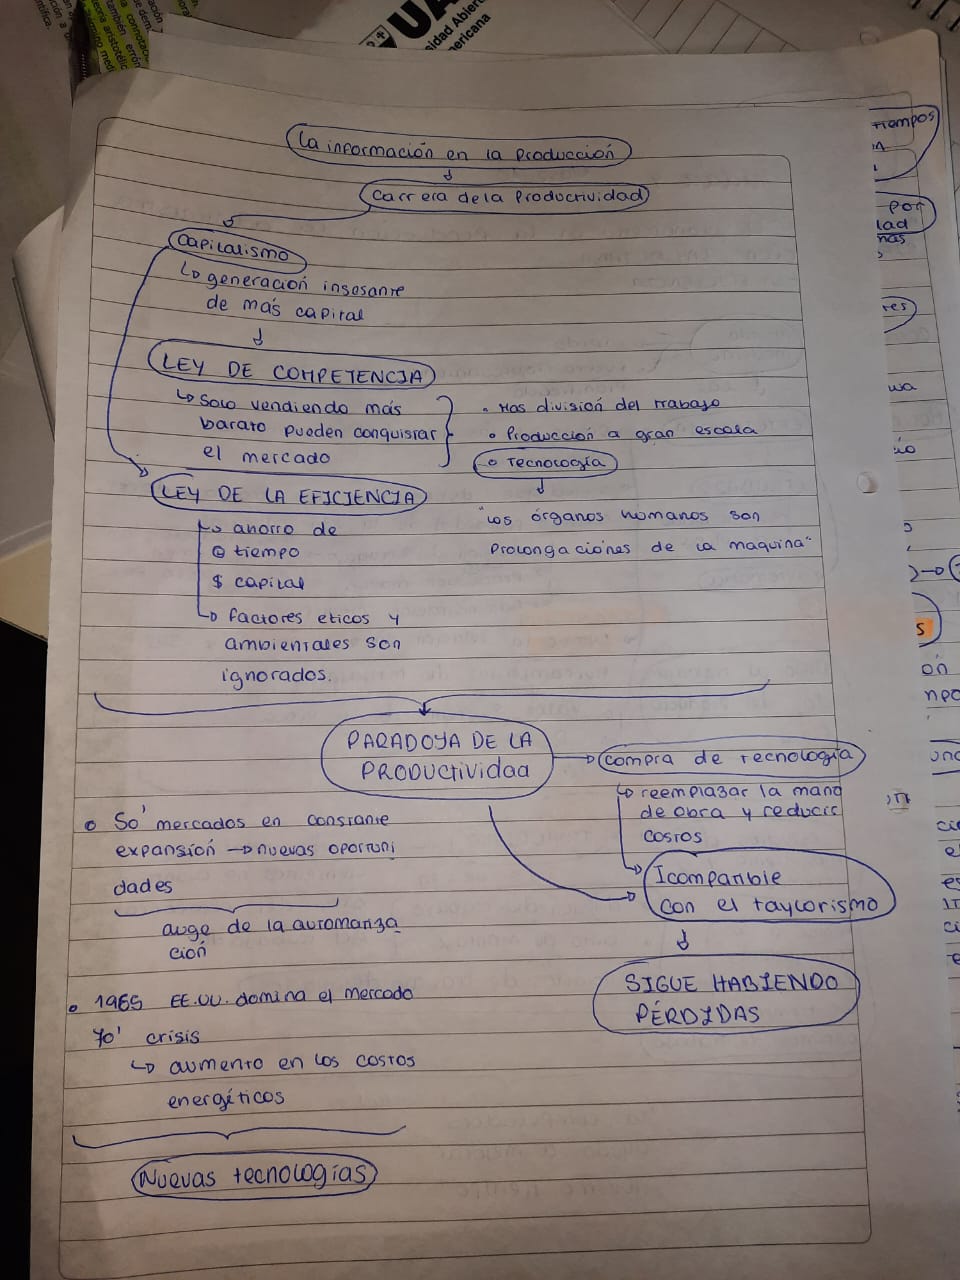 La información en la Producción
Carrera de la Productividad
Capitalismo
generación insesante
de más capital
LEY DE COMPETENCIA
Solo vendiendo más
barato pueden conquistar
el mercado
• Mas división del trabajo
• Producción a gran escala
• Tecnología
"Los órganos humanos son
prolongaciones de la maquina"
LEY DE LA EFICIENCIA
ahorro de
tiempo
$ capital
factores eticos y
ambientales son
ignorados.
PARADOJA DE LA
PRODUCTIVIDAD
compra de tecnología
reemplazar la mano
de obra y reducir
costos
Icompatible
con el taylorismo
SIGUE HABIENDO
PÉRDIDAS
• 50' mercados en constante
expansión → nuevas oportuni
dades
auge de la automatiza
ción
• 1965 EE.UU. domina el mercado
70' crisis
aumento en los costos
energéticos
Nuevas tecnologías
tiempos
por
lad
nas
res